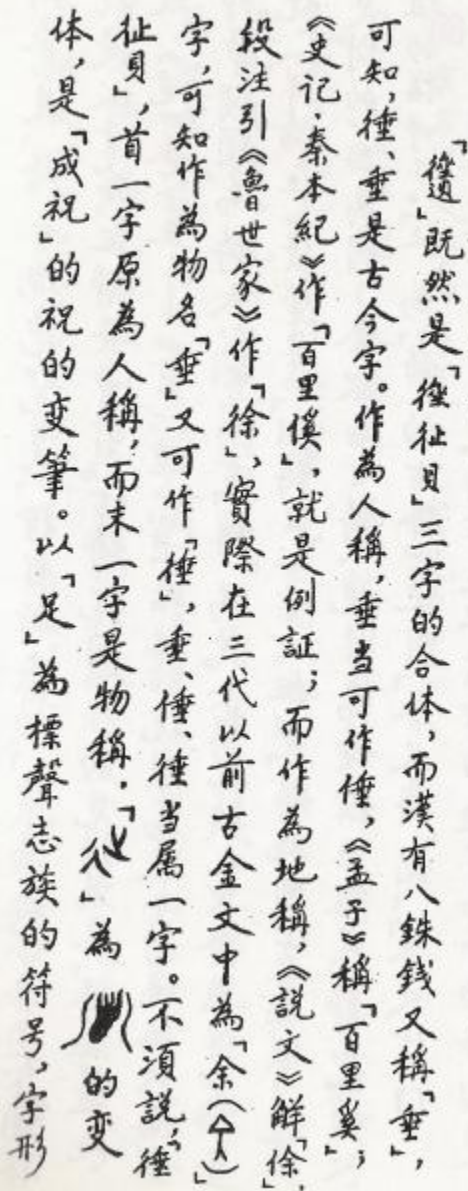 「𢕬」既然是「徾㣟貝」三字的合体，而漢有八銖錢又稱「垂」，
可知，徾、垂是古今字。作為人稱，垂当可作倕，《孟子》稱「百里奚」；
《史记·秦本紀》作「百里傒」，就是例証；而作為地稱，《説文》解「徐」，
段注引《魯世家》作「徐」，實際在三代以前古金文中為「余（）」
字，可知作為物名「垂」又可作「徾」，垂、倕、徾当属一字。不須説，「徾
㣟貝」，首一字原為人稱，而末一字是物稱．「」為的变
体，是「成祝」的祝的变筆。以「足」為標聲志族的符号，字形